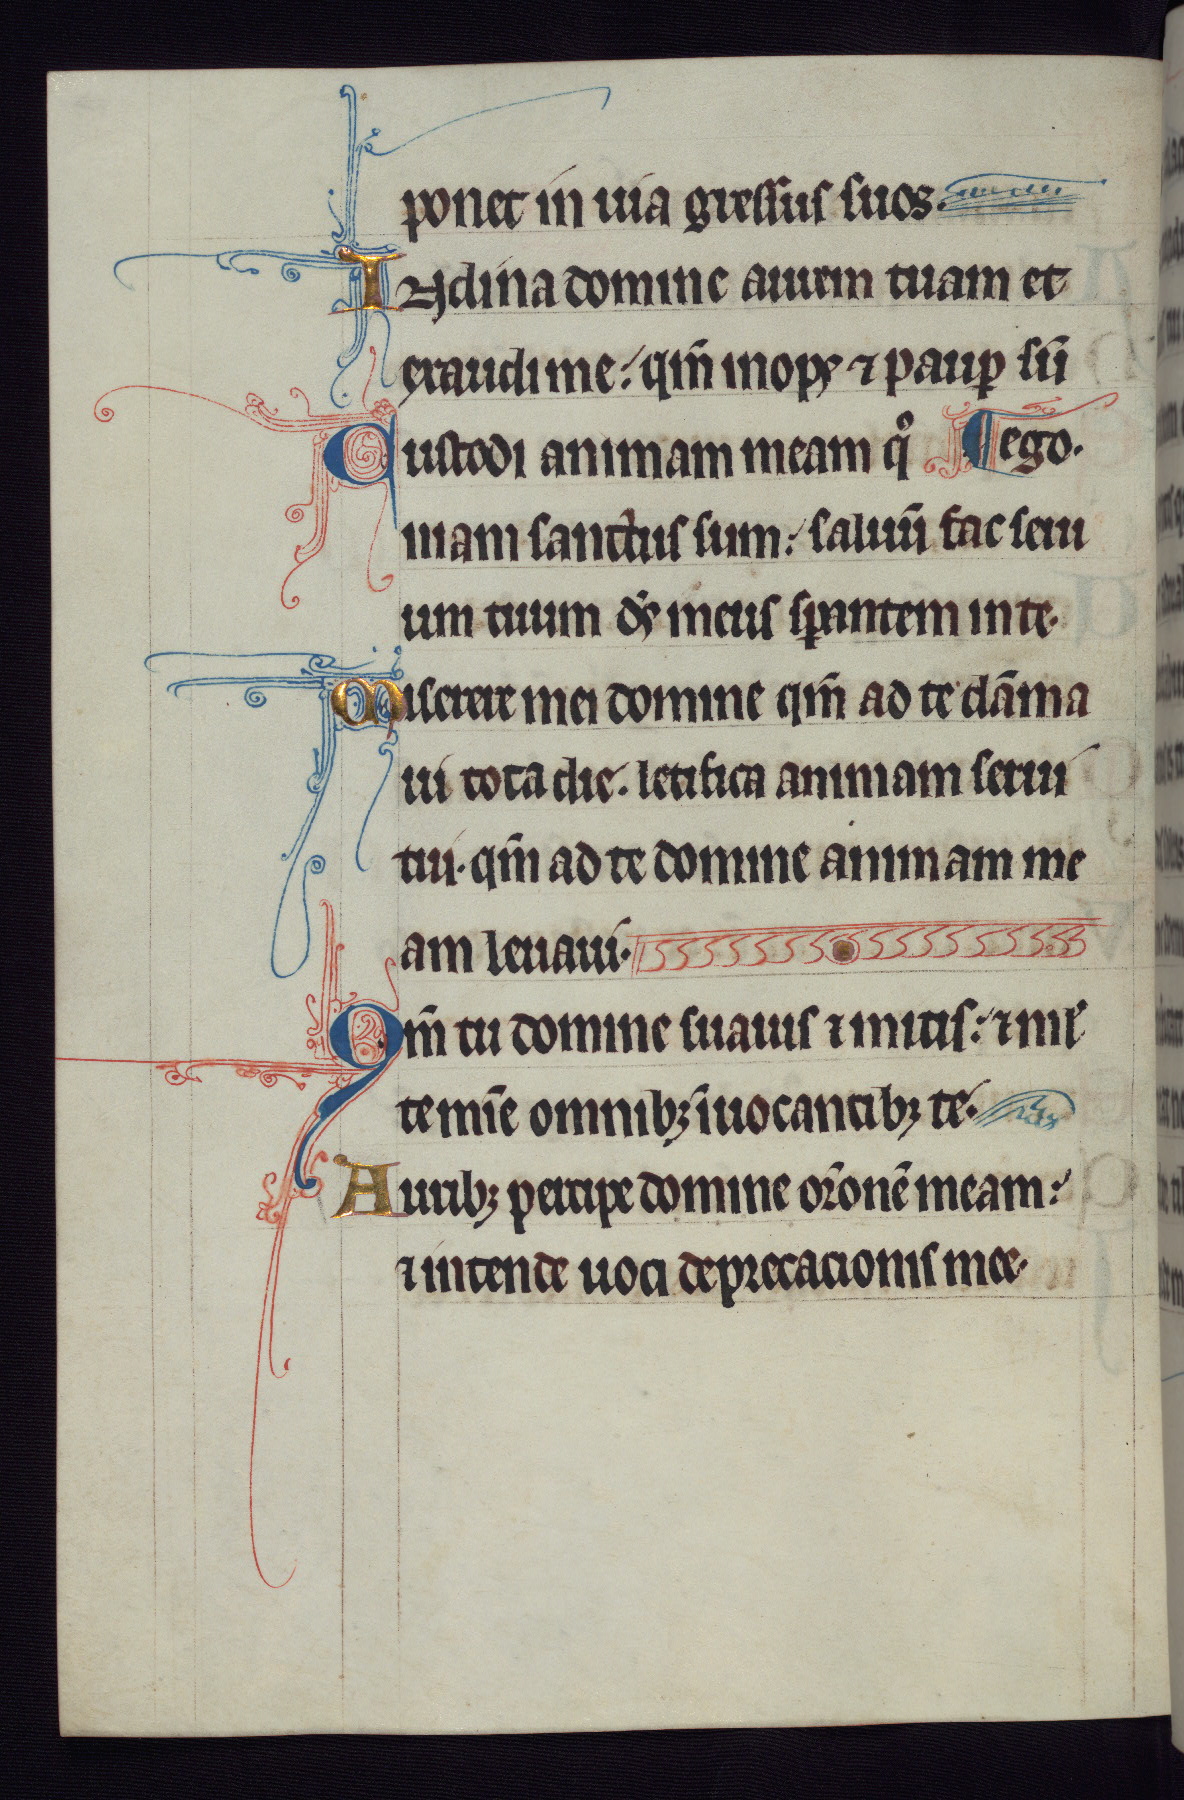 ponet in uia gressus suos.
INclina domine aurem tuam et
exaudi me: qm̄ inops ⁊ paup sū
Custodi animam meam qo ¶ ego.
niam sanctus sum: saluū fac seru
um tuum ds meus sperantem in te.
Miserere mei domine qm̄ ad te clāma
ui tota die. letifica animam serui
tui. qm̄ ad te domine animam me
am leuaui.
Qm̄ tu domine suauis ⁊ mitis: ⁊ ml̄
te mīe omnibꝫ īuocantibꝫ te.
Auribꝫ percipe domine orōnē meam:
⁊ intende uoci deprecacionis mee.